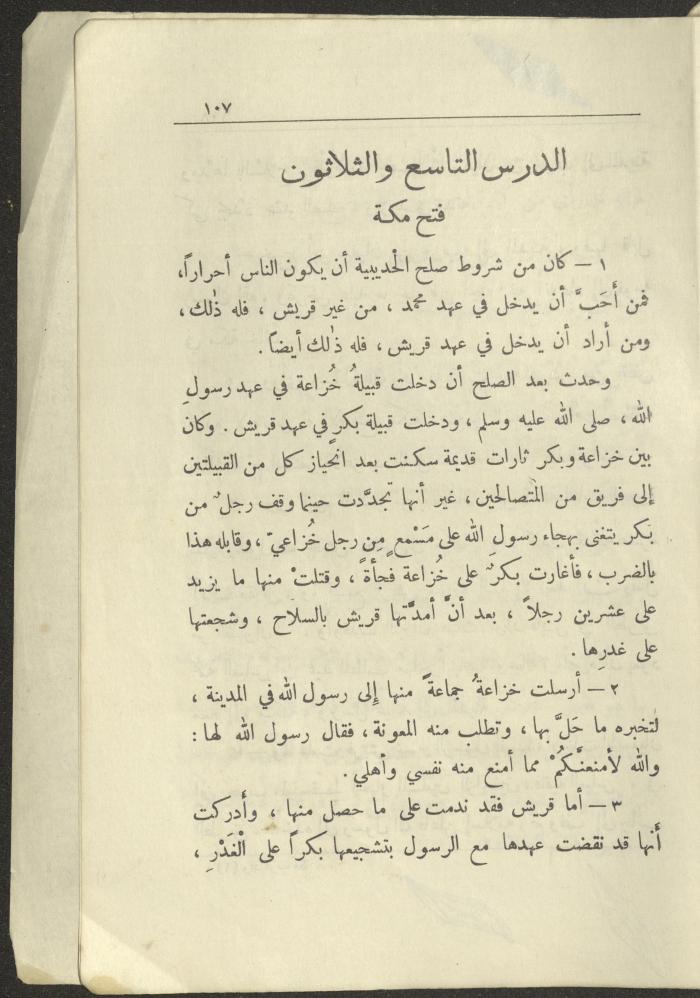 ١٠٧
الدرس التاسع والثلاثون
فتح مكة
١ – كان من شروط صلح الْحديبية أن يكون الناس أحراراً،
فمن أَحَبَّ أن يدخل في عهد محمد ، من غير قريش ، فله ذٰلك ،
ومن أراد أن يدخل في عهد قريش ، فله ذٰلك أيضاً .
وحدث بعد الصلح أن دخلت قبيلةُ خُزاعة في عهد رسولِ
الله ، صلى الله عليه وسلم ، ودخلت قبيلة بكرٍ في عهد قريش . وكان
بين خزاعة وبكر ثارات قديمة سكنت بعد انحياز كل من القبيلتين
إلى فريق من المتصالحين ، غير أنها تجدَّدت حينما وقف رجلٌ من
بكر يتغنى بهجاء رسولِ الله على مَسْمعٍ مِن رجل خُزاعيّ ، وقابله هذا
بالضرب ، فأغارت بكرٌ على خُزاعة فجأةً ، وقتلتْ منها ما يزيد
على عشرين رجلاً ، بعد أنْ أمدَّتها قريش بالسلاح ، وشجعتها
على غدرِها .
٢ – أرسلت خزاعةُ جماعةً منها إلى رسول الله في المدينة ،
لتخبره ما حَلَّ بها ، وتطلب منه المعونة ، فقال رسول الله لها :
والله لأمنعنَّكُمْ مما أمنع منه نفسي وأهلي .
٣ – أما قريش فقد ندمت على ما حصل منها ، وأدركت
أنها قد نقضت عهدها مع الرسول بتشجيعها بكراً على الْغَدْرِ ،